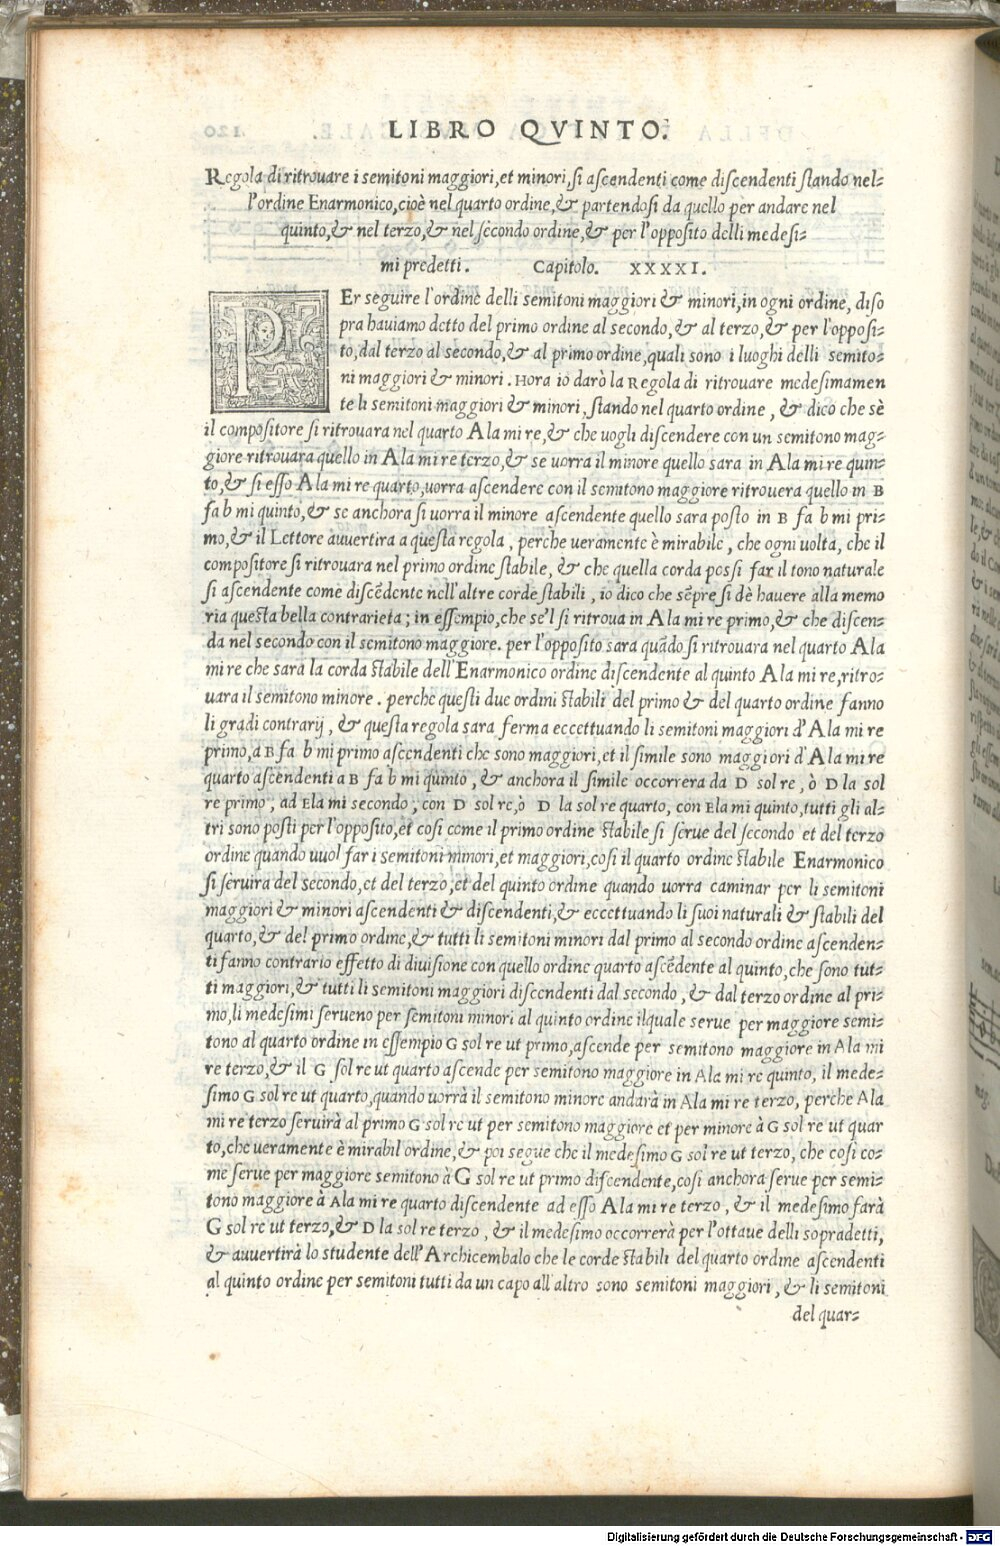 LIBRO QVINTO.
Regola di ritrouare i semitoni maggiori, et minori, si ascendenti come discendenti stando nel=
l'ordine Enarmonico, cioè nel quarto ordine, & partendosi da quello per andare nel
quinto, & nel terzo, & nel secondo ordine, & per l'opposito delli medesi=
mi predetti. Capitolo. XXXXI.
PEr seguire l'ordine delli semitoni maggiori & minori, in ogni ordine, diso
pra hauiamo detto del primo ordine al secondo, & al terzo, & per l'opposi=
to, dal terzo al secondo, & al primo ordine, quali sono i luoghi delli semito=
ni maggiori & minori. Hora io darò la Regola di ritrouare medesimamen
te li semitoni maggiori & minori, stando nel quarto ordine, & dico che sè
il compositore si ritrouara nel quarto A la mi re, & che uogli discendere con un semitono mag=
giore ritrouara quello in A la mi re terzo, & se uorra il minore quello sara in A la mi re quin=
to, & si esso A la mi re quarto, uorra ascendere con il semitono maggiore ritrouera quello in B
fa b mi quinto, & se anchora si uorra il minore ascendente quello sara posto in B fa b mi pri=
mo, & il Lettore auuertira a questa regola, perche ueramente è mirabile, che ogni uolta, che il
compositore si ritrouara nel primo ordine stabile, & che quella corda possi far il tono naturale
si ascendente come discẽdente nell'altre corde stabili, io dico che sẽpre si dè hauere alla memo
ria questa bella contrarieta; in essempio, che se'l si ritroua in A la mi re primo, & che discen=
da nel secondo con il semitono maggiore. per l'opposito sara quãdo si ritrouara nel quarto A la
mi re che sarà la corda stabile dell'Enarmonico ordine discendente al quinto A la mi re, ritro=
uara il semitono minore. perche questi due ordini stabili del primo & del quarto ordine fanno
li gradi contrarij, & questa regola sara ferma eccettuando li semitoni maggiori d'A la mi re
primo, a B fa b mi primo ascendenti che sono maggiori, et il simile sono maggiori d'A la mi re
quarto ascendenti a B fa b mi quinto, & anchora il simile occorrera da D sol re, ò D la sol
re primo, ad Ela mi secondo, con D sol re, ò D la sol re quarto, con Ela mi quinto, tutti gli al=
tri sono posti per l'opposito, et cosi come il primo ordine stabile si serue del secondo et del terzo
ordine quando uuol far i semitoni minori, et maggiori, cosi il quarto ordine stabile Enarmonico
si seruira del secondo, et del terzo, et del quinto ordine quando uorra caminar per li semitoni
maggiori & minori ascendenti & discendenti, & eccettuando li suoi naturali & stabili del
quarto, & del primo ordine, & tutti li semitoni minori dal primo al secondo ordine ascenden=
ti fanno contrario effetto di diuisione con quello ordine quarto ascẽdente al quinto, che sono tut=
ti maggiori, & tutti li semitoni maggiori discendenti dal secondo, & dal terzo ordine al pri=
mo, li medesimi serueno per semitoni minori al quinto ordine ilquale serue per maggiore semi=
tono al quarto ordine in essempio G sol re ut primo, ascende per semitono maggiore in A la mi
re terzo, & il G sol re ut quarto ascende per semitono maggiore in A la mi re quinto, il mede=
simo G sol re ut quarto, quando uorrà il semitono minore andarà in A la mi re terzo, perche A la
mi re terzo seruirà al primo G sol re ut per semitono maggiore et per minore à G sol re ut quar
to, che ueramente è mirabil ordine, & poi segue che il medesimo G sol re ut terzo, che cosi co=
me serue per maggiore semitono à G sol re ut primo discendente, cosi anchora serue per semi=
tono maggiore à A la mi re quarto discendente ad esso A la mi re terzo, & il medesimo farà
G sol re ut terzo, & D la sol re terzo, & il medesimo occorrerà per l'ottaue delli sopradetti,
& auuertirà lo studente dell'Archicembalo che le corde stabili del quarto ordine ascendenti
al quinto ordine per semitoni tutti da un capo all'altro sono semitoni maggiori, & li semitoni
del quar=
Digitalisierung gefördert durch die Deutsche Forschungsgemeinschaft - DFG